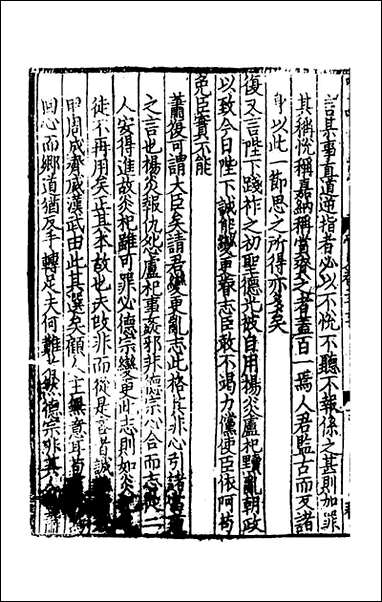 言其事直道逆指者必以不悅不聽不報係之甚則加罪
其稱悅稱嘉納稱賞賚之者蓋百一焉人君監古而反諸
身以此一節思之所得亦多矣
復又言陛下踐祚之初聖德光被自用楊炎盧杞黷亂朝政
以致今日陛下誠能變更睿志臣敢不竭力儻使臣依阿苟
免臣實不能
蕭復可謂大臣矣請君變更亂志此格其非心引諸當道
之言也楊炎報仇怨盧杞事姦邪非德宗心合而志與二
人安得進故炎杞雖可罪必德宗變更其志則如炎杞之
徒不再用矣正其本故也夫改非而從是言者誠
甲周成齊威漢武由此其選矣顧人主無意耳苟
回心而鄉道猶反手轉足夫何難之然德宗非其人